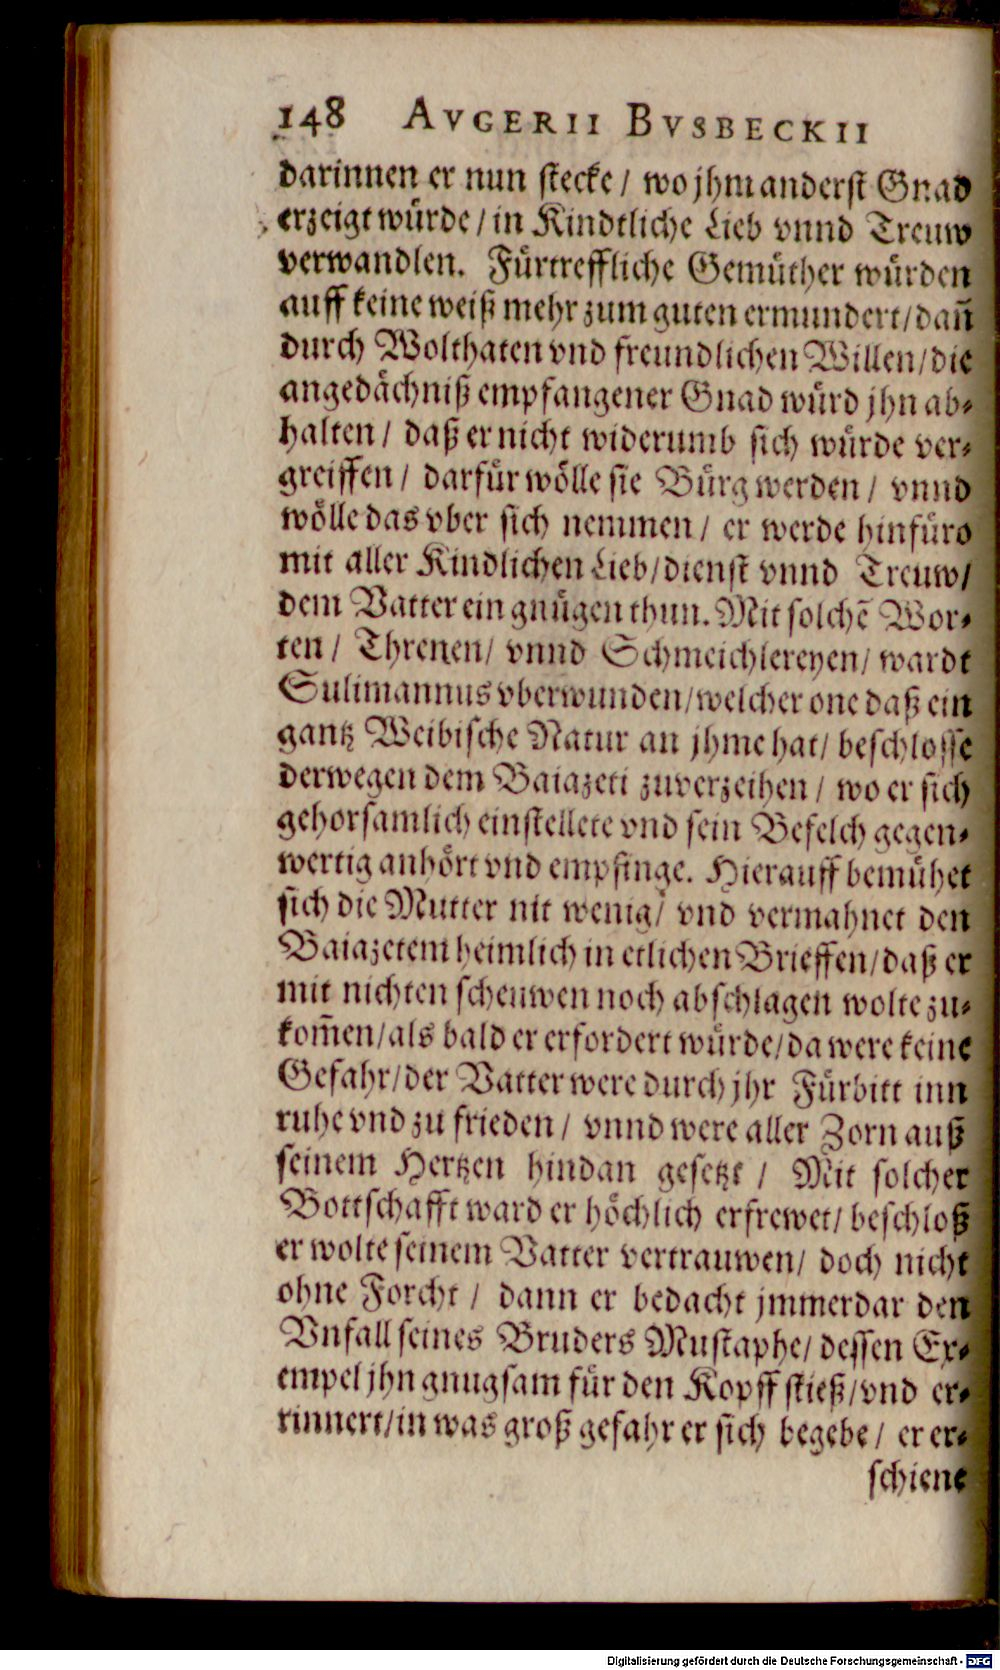 148 AVGERII BVSBECKII
darinnen er nun stecke / wo jhm anderst Gnad
erzeigt würde / in Kindtliche Lieb vnnd Treuw
verwandlen. Fürtreffliche Gemüther würden
auff keine weiß mehr zum guten ermundert / dañ
durch Wolthaten vnd freundlichen Willen / die
angedächniß empfangener Gnad würd jhn ab-
halten / daß er nicht widerumb sich würde ver-
greiffen / darfür wölle sie Bürg werden / vnnd
wölle das vber sich nemmen / er werde hinfüro
mit aller Kindlichen Lieb / dienst vnnd Treuw /
dem Vatter ein gnügen thun. Mit solchẽ Wor-
ten / Threnen / vnnd Schmeichlereyen / wardt
Sulimannus vberwunden / welcher one daß ein
gantz Weibische Natur an jhme hat / beschlosse
derwegen dem Baiazeti zuverzeihen / wo er sich
gehorsamlich einstellete vnd sein Befelch gegen-
wertig anhört vnd empfinge. Hierauff bemühet
sich die Mutter nit wenig / vnd vermahnet den
Baiazetem heimlich in etlichen Brieffen / daß er
mit nichten scheuwen noch abschlagen wolte zu-
kom̃en / als bald er erfordert würde / da were keine
Gefahr / der Vatter were durch jhr Fürbitt inn
ruhe vnd zu frieden / vnnd were aller Zorn auß
seinem Hertzen hindan gesetzt / Mit solcher
Bottschafft ward er höchlich erfrewet / beschloß
er wolte seinem Vatter vertrauwen / doch nicht
ohne Forcht / dann er bedacht jmmerdar den
Vnfall seines Bruders Mustaphe / dessen Ex-
empel jhn gnugsam für den Kopff stieß / vnd er-
rinnert / in was groß gefahr er sich begebe / er er-
schiene
Digitalisierung gefördert durch die Deutsche Forschungsgemeinschaft - DFG